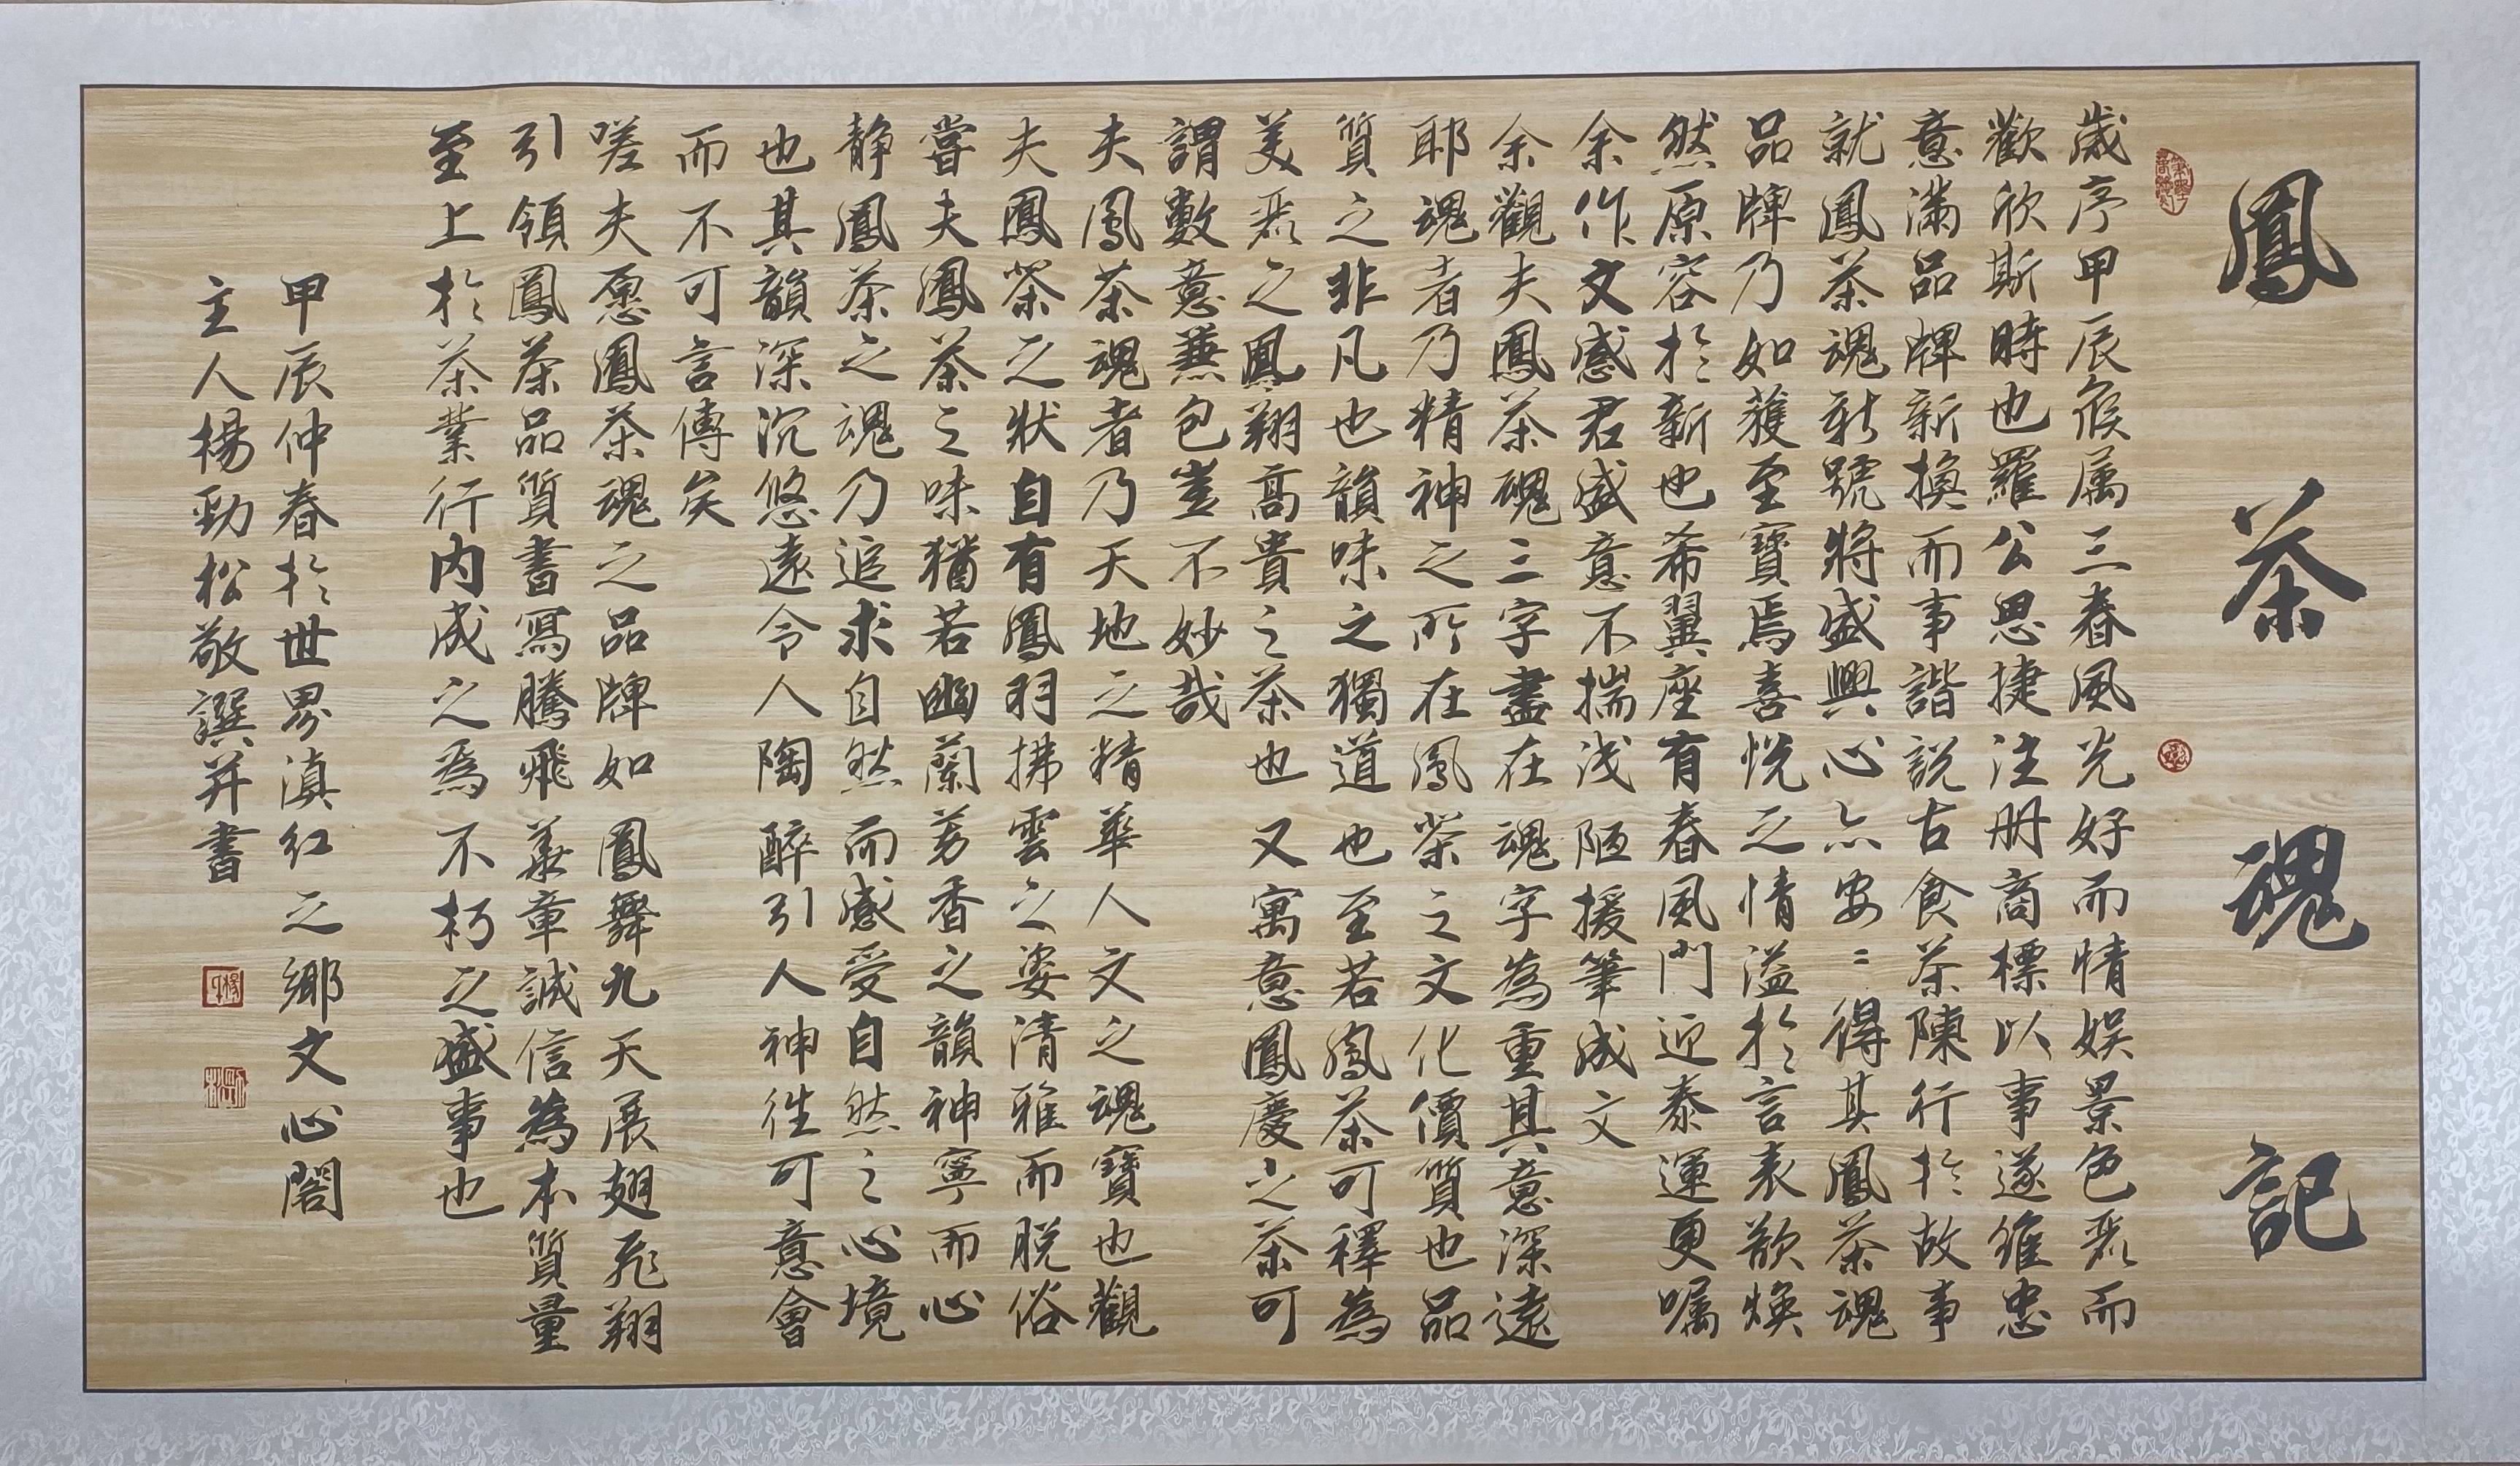 鳳茶魂記
歲序甲辰候属三春風光好而情娱景色燕而
歡欣斯時也羅公思捷注册商標以事遂維忠
意滿品牌新換而事諧説古食茶陳行於故事
就鳳茶魂新號將盛興心亦安二得其鳳茶魂
品牌乃如獲至寶焉喜悦之情溢於言表歆焕
然原容於新也希翼座有春風門迎泰運更嘱
余作文感君盛意不揣浅陋援筆成文
余觀夫鳳茶魂三字盡在魂字為重其意深遠
耶魂者乃精神之所在鳳茶之文化價質也品
質之非凡也韻味之獨道也至若鳳茶可釋為
美燕之鳳翔高貴之茶也又寓意鳳慶之茶可
謂數意兼包豈不妙哉
夫鳳茶魂者乃天地之精華人文之魂寶也觀
夫鳳茶之狀自有鳳羽拂雲之姿清雅而脱俗
嘗夫鳳茶之味猶若幽蘭芳香之韻神寧而心
静鳳茶之魂乃追求自然而感受自然之心境
也其韻深沉悠遠令人陶醉引人神往可意會
而不可言傳矣
嗟夫愿鳳茶魂之品牌如鳳舞九天展翅飛翔
引領鳳茶品質書寫騰飛華章誠信為本質量
至上於茶業行内成之為不朽之盛事也
甲辰仲春於世界滇红之鄉文心閣
主人楊勁松敬譔并書